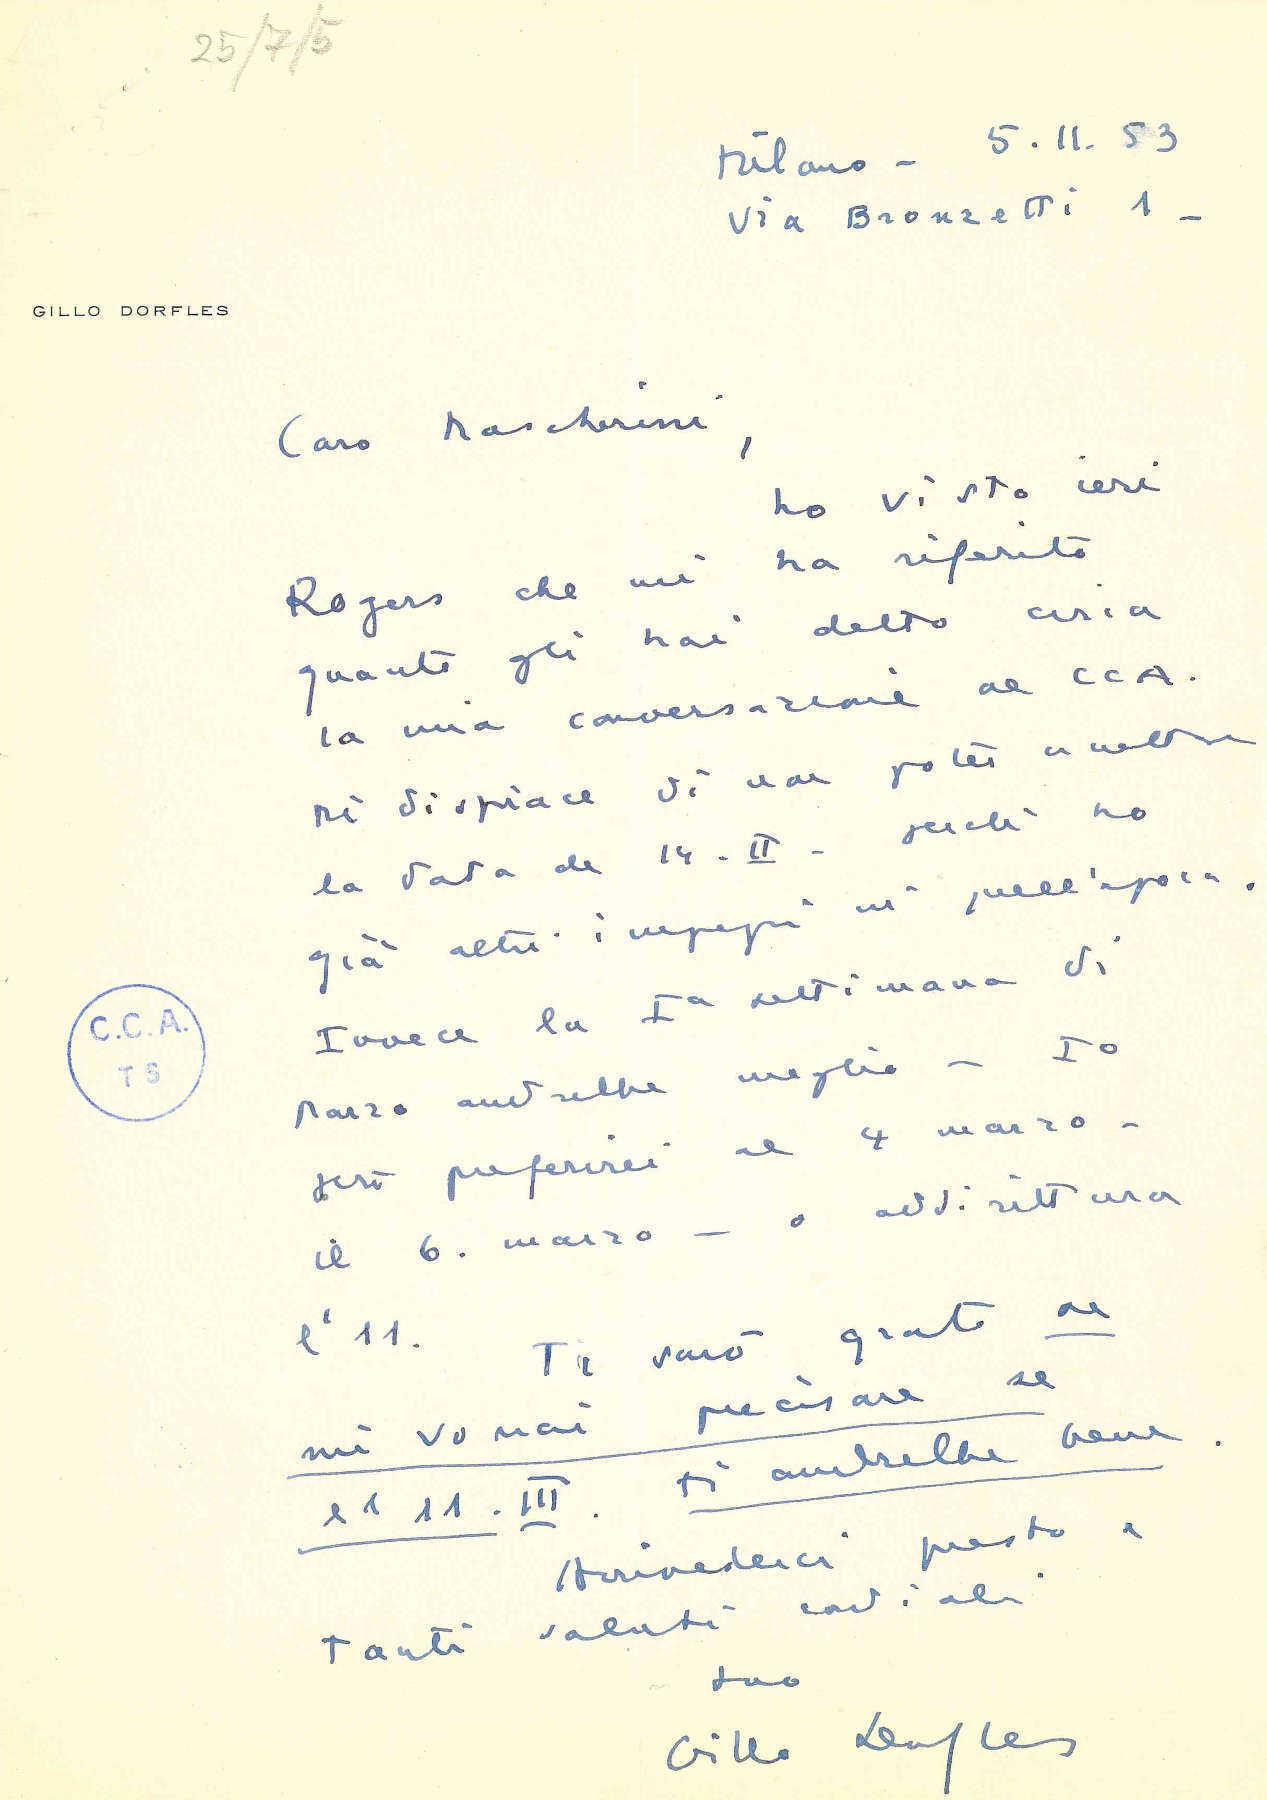 25/7/5
Milano - 5.II.53
Via Bronzetti 1 -
GILLO DORFLES
Caro Mascherini,
ho visto ieri
Rogers che mi ha riferito
quanto gli hai detto circa
la mia conversazione al CCA.
Mi dispiace di non poter accettare
la data del 14.II - perché ho
già altri impegni in quell'epoca.
Invece la Iª settimana di
Marzo andrebbe meglio - Io
però preferirei al 4 marzo -
il 6. marzo - o addirittura
l'11. Ti sarò grato se
mi vorrai precisare se
l'11.III. ti andrebbe bene.
Arrivederci presto e
tanti saluti cordiali
tuo
Gillo Dorfles
C.C.A.
TS